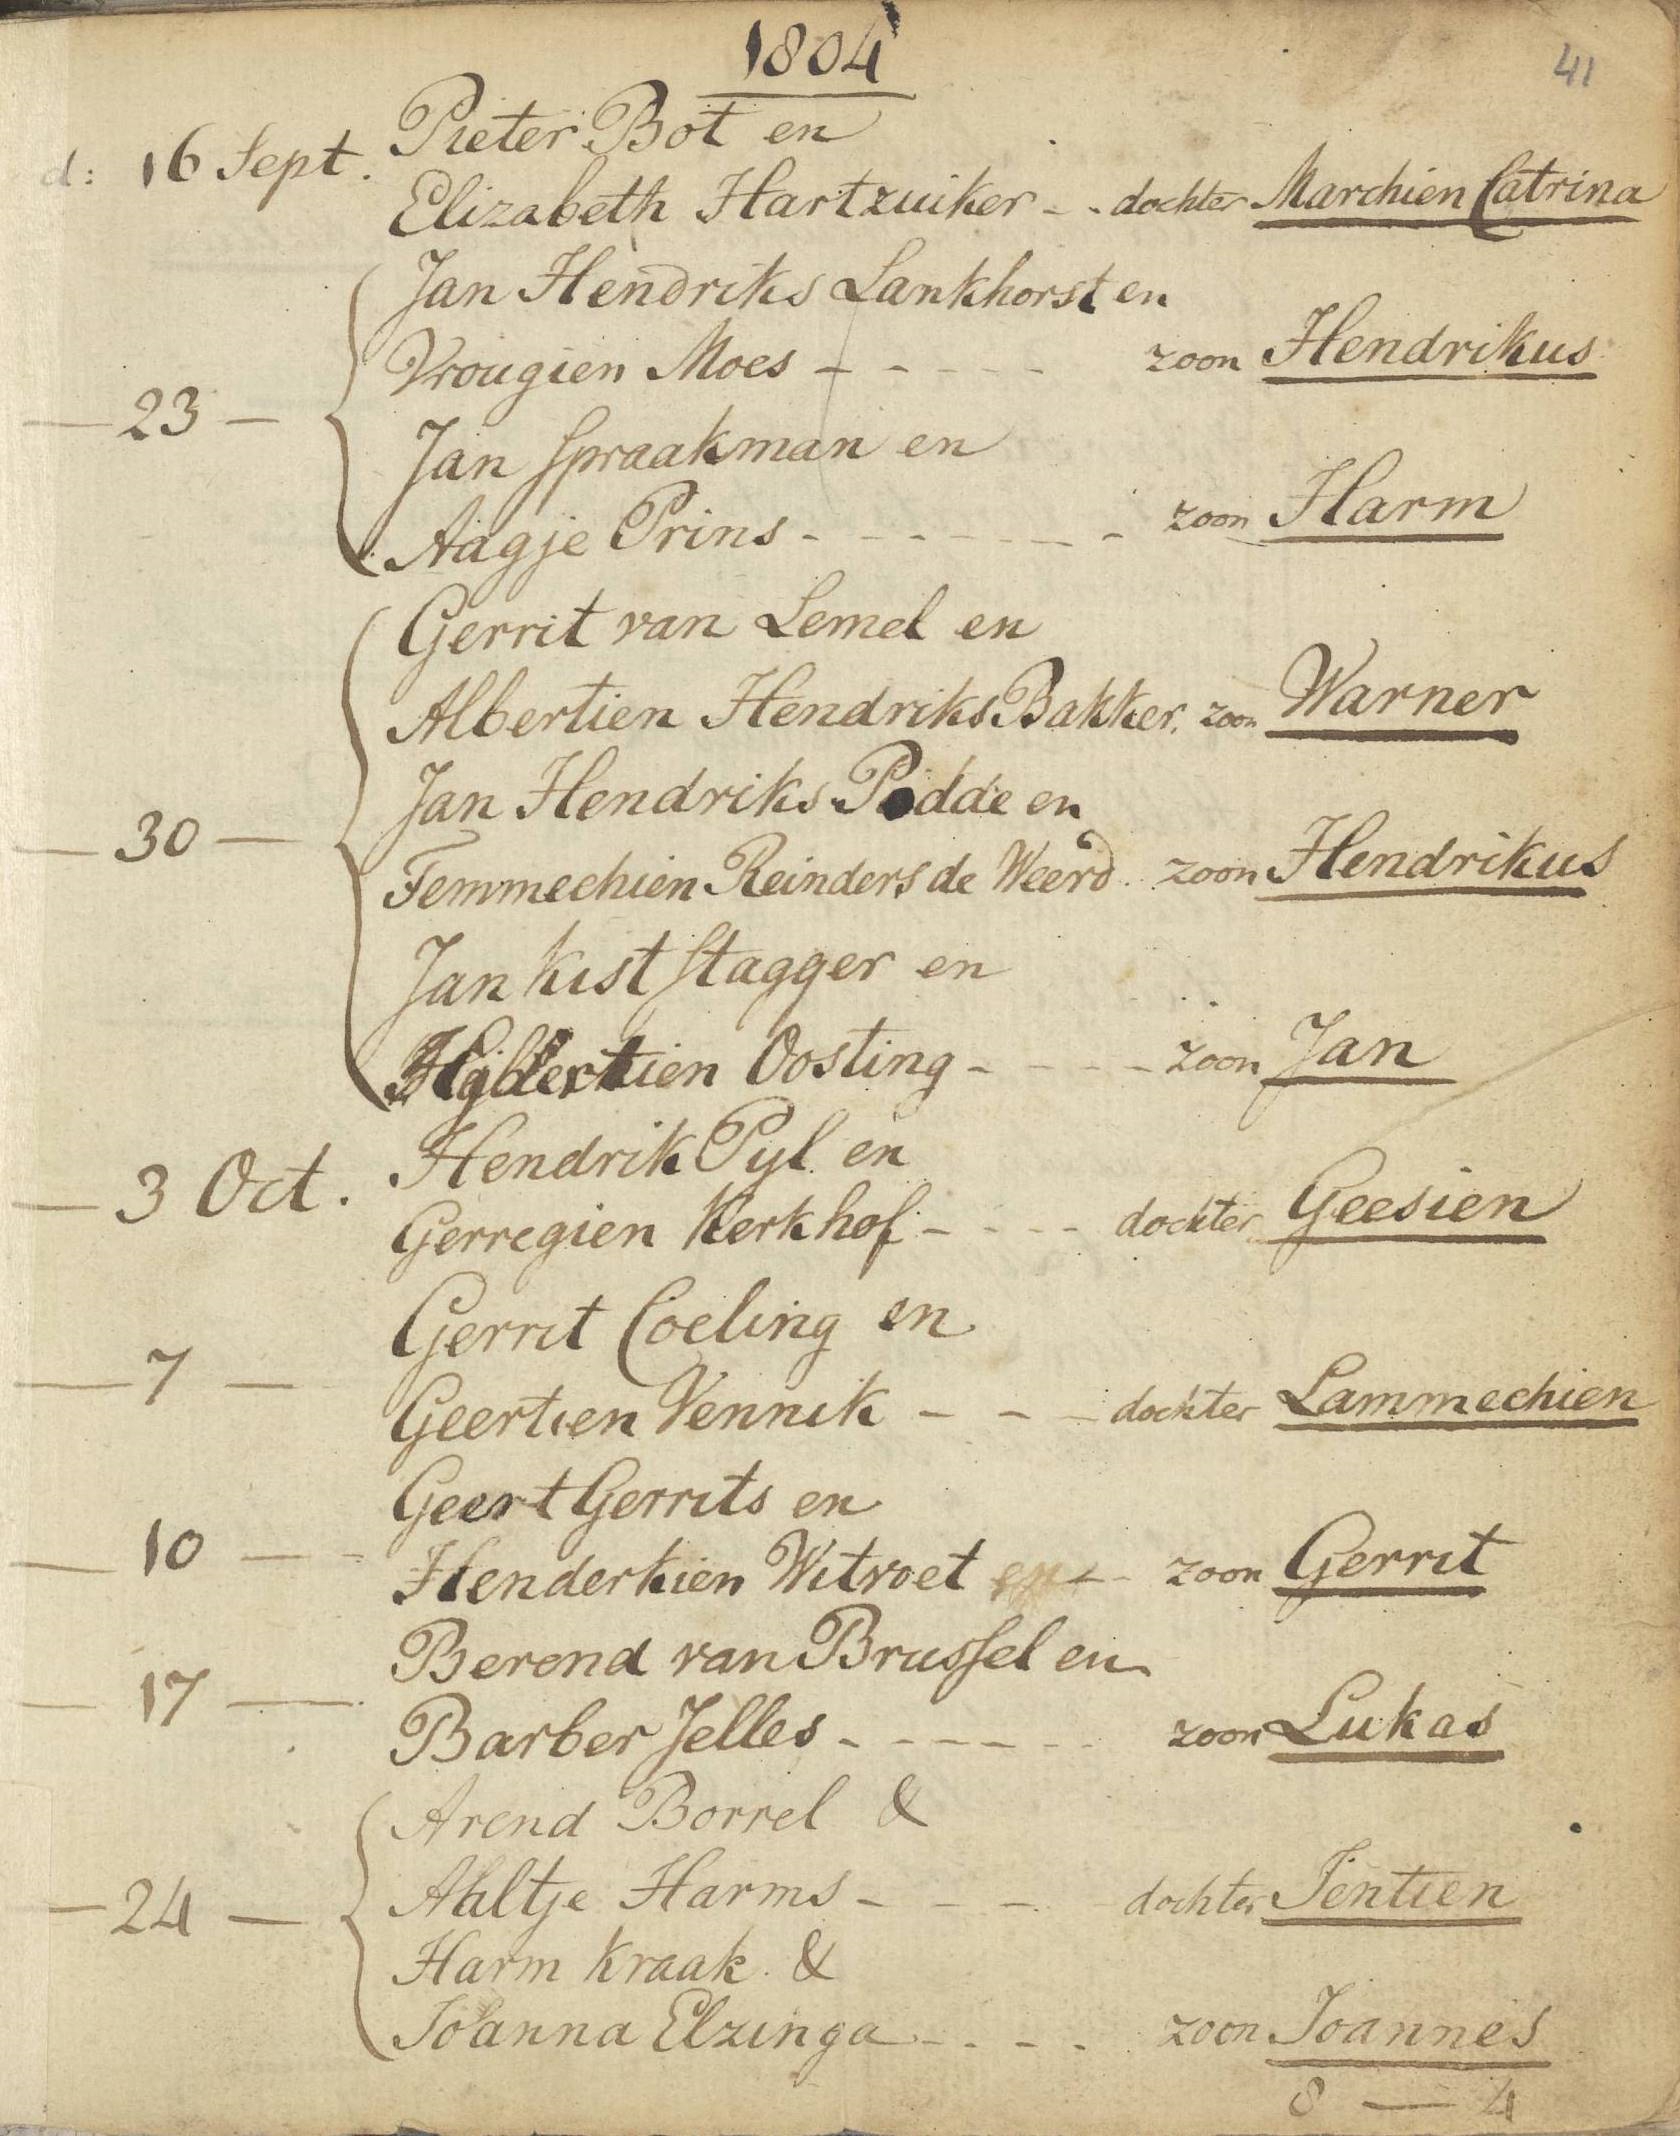 1804
41
d: 16 Sept. Pieter Bot en
Elizabeth Hartzuiker - - dochter Marchien Catrina
Jan Hendriks Lankhorst en
Vrougien Moes - - - - - zoon Hendrikus
— 23 —
Jan Spraakman en
Aagje Prins - - - - - - - zoon Harm
Gerrit van Lemel en
Albertien Hendriks Bakker. zoon Warner
Jan Hendriks Podde en
— 30 —
Femmechien Reinders de Weerd. zoon Hendrikus
Jan Kist Stagger en
Oosting - - - - zoon Jan
— 3 Oct. Hendrik Pyl en
Gerregien Kerkhof - - - - dochter Geesien
Gerrit Coeling en
— 7 —
Geertien Vennik - - - dochter Lammechien
Geert Gerrits en
— 10 — -
Henderkien Witvoet en - - zoon Gerrit
Berend van Brussel en
— 17 —
Barber Jelles - - - - - - zoon Lukas
Arend Borrel &
Ahltje Harms - - - - dochter Jentien
— 24 —
Harm Kraak &
Johanna Elzinga - - - - zoon Joannes
8 — 4